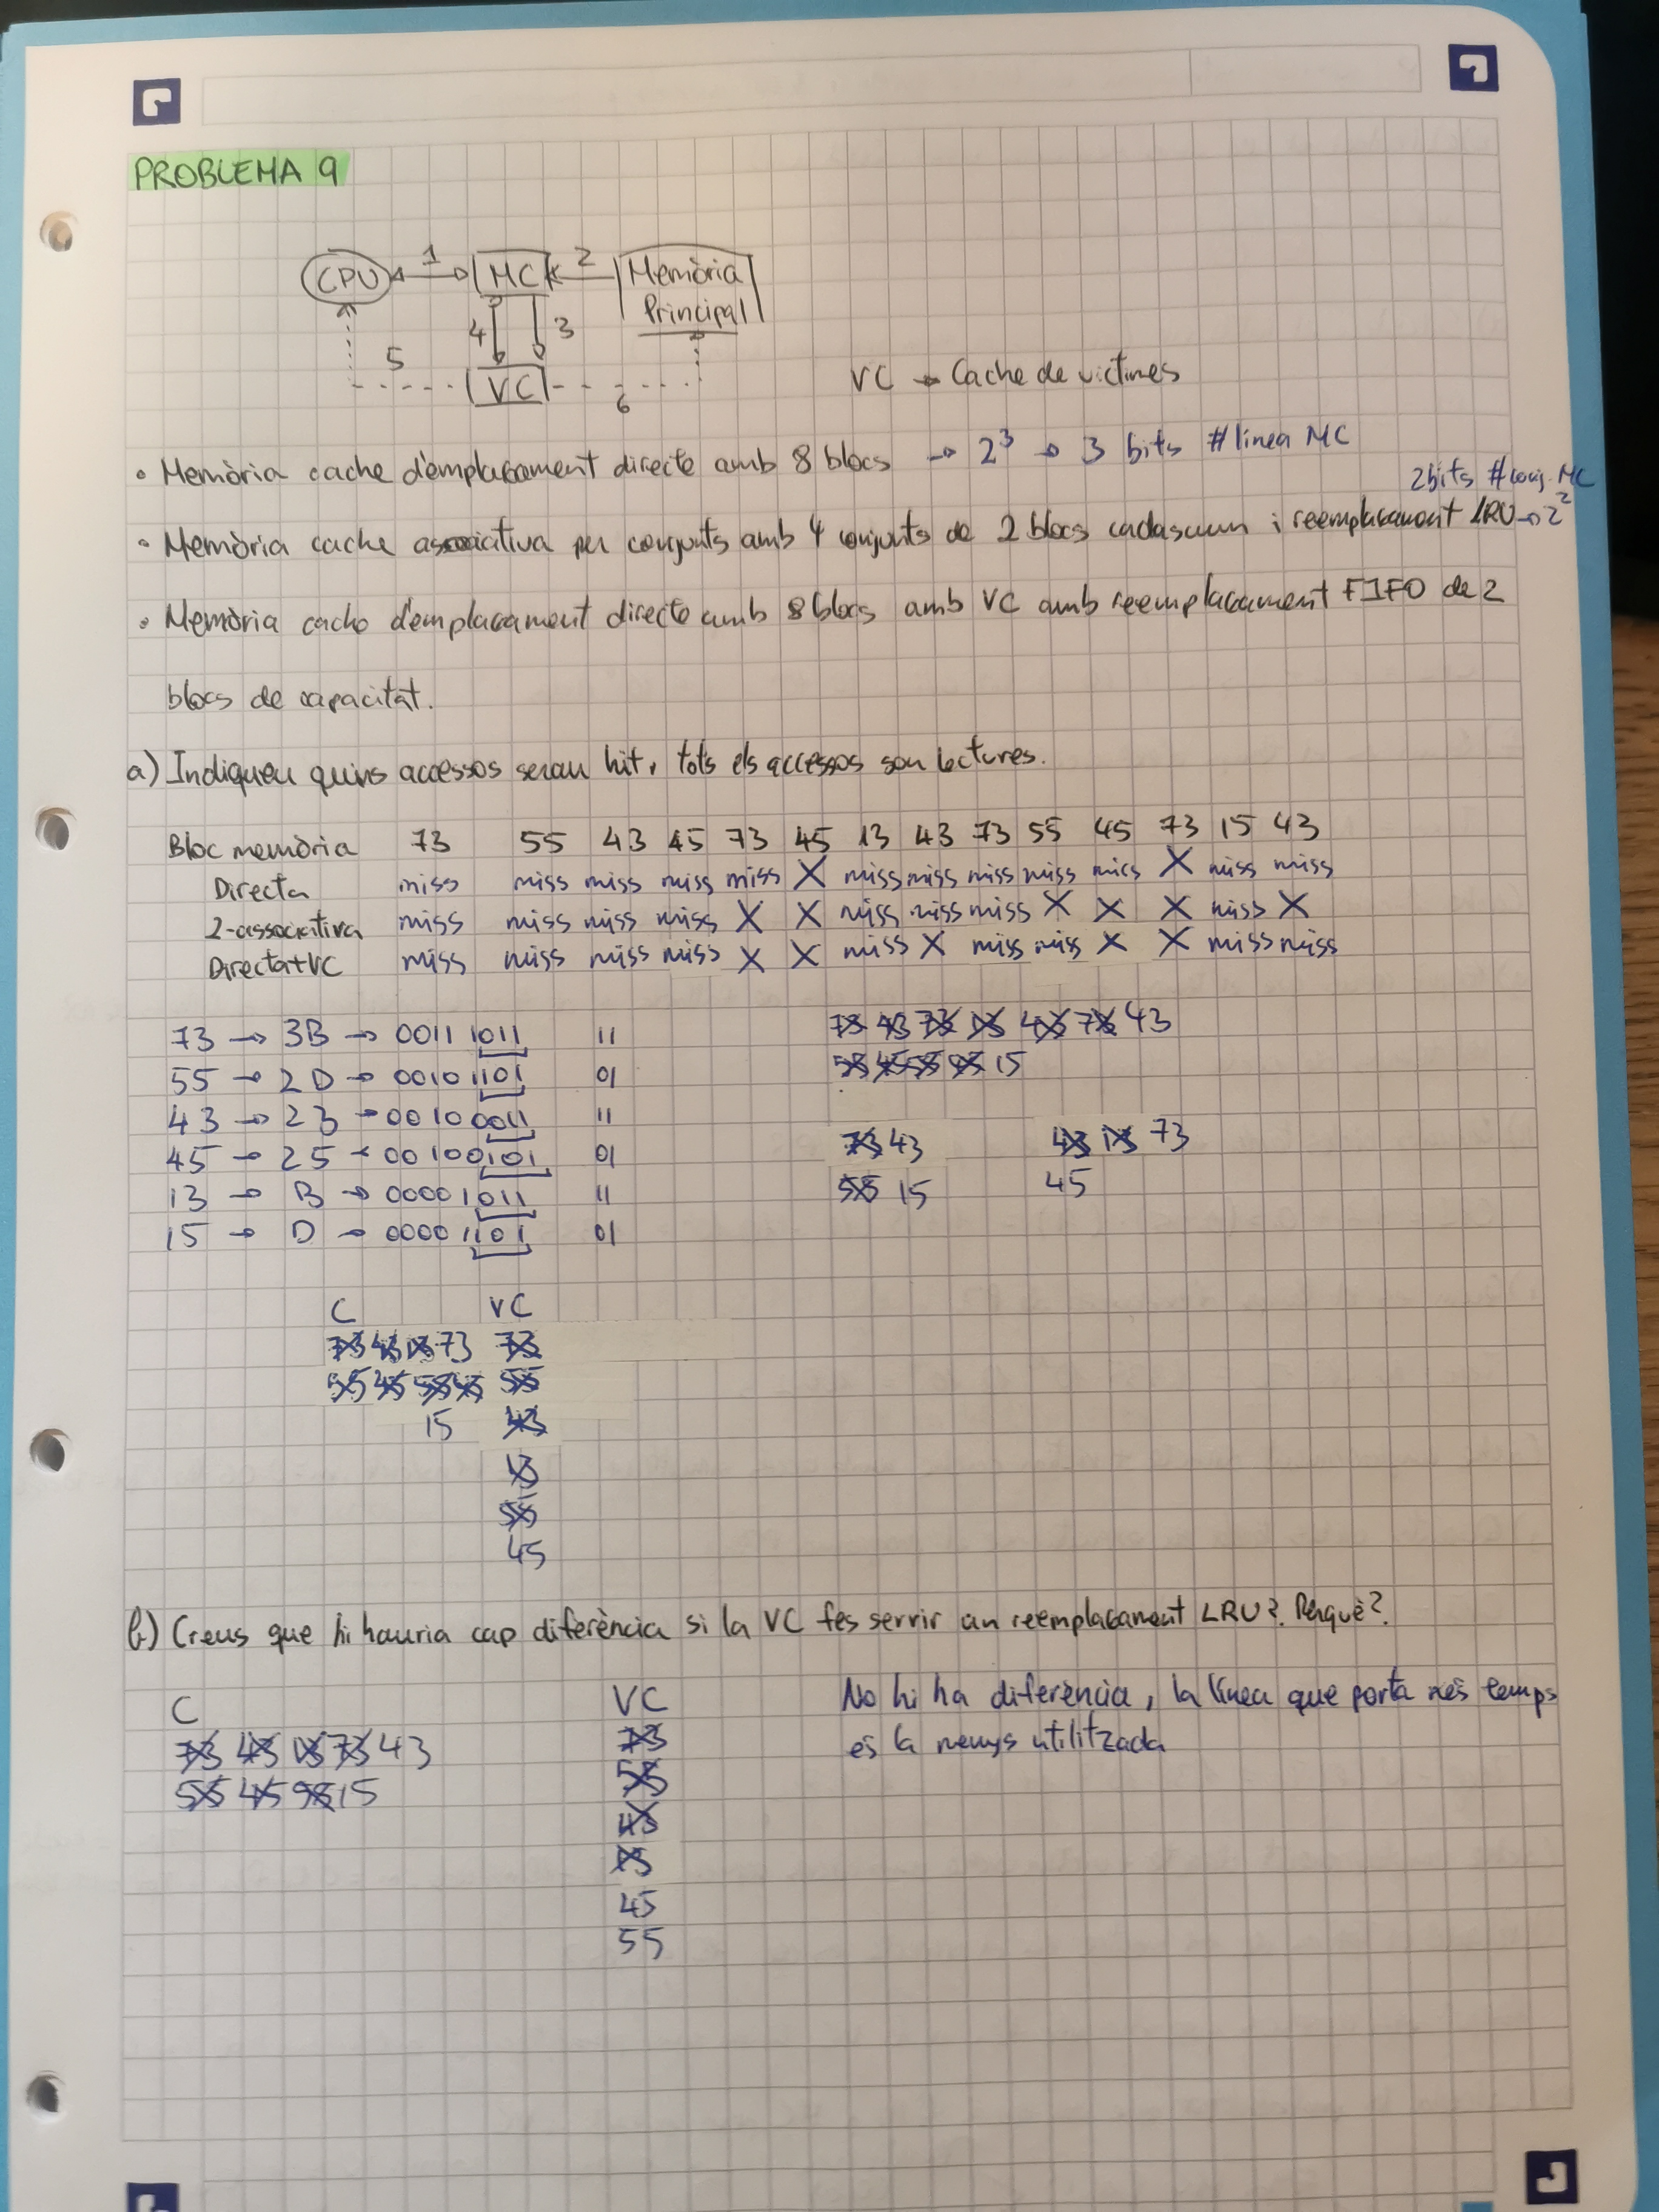 PROBLEMA 9
CPU 1 MC 2 Memòria
Principal
4 3
5
VC 6
VC → Cache de víctimes
• Memòria cache d'emplaçament directe amb 8 blocs → 2³ → 3 bits #línea MC
2bits #conj. MC
• Memòria cache associativa per conjunts amb 4 conjunts de 2 blocs cadascun i reemplaçament LRU → 2²
• Memòria cache d'emplaçament directe amb 8 blocs amb VC amb reemplaçament FIFO de 2
blocs de capacitat.
a) Indiqueu quins accessos seran hit, tots els accessos son lectures.
Bloc memòria 73 55 43 45 73 45 13 43 73 55 45 73 15 43
Directa miss miss miss miss miss X miss miss miss miss miss X miss miss
2-associativa miss miss miss miss X X miss miss miss X X X miss X
Directa+VC miss miss miss miss X X miss X miss miss X X miss miss
73 → 3B → 0011 1011 11
55 → 2D → 00101101 01
43 → 23 → 00100011 11
45 → 25 → 00100101 01
13 → B → 00001011 11
15 → D → 00001101 01
73 43 73 13 43 73 43
55 45 55 45 15
73 43 43 13 73
55 15 45
C VC
73 43 13 73 73
55 45 55 45 55
15 43
13
55
45
b) Creus que hi hauria cap diferència si la VC fes servir un reemplaçament LRU?. Perquè?.
C VC
73 43 13 73 43 73
55 45 55 15 55
45
55
No hi ha diferència, la línea que porta més temps
és la menys utilitzada